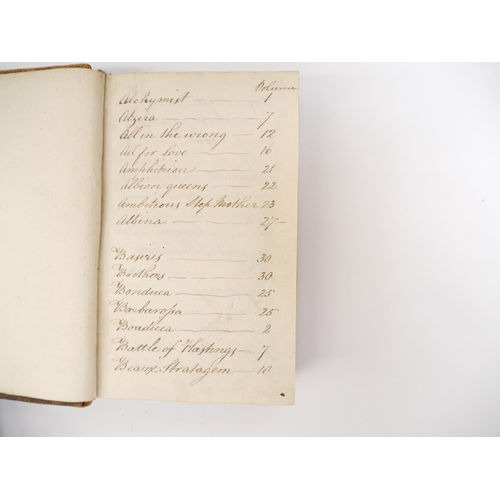 Volume
Alchymist 1
Alzira 7
All in the wrong 12
All for love 16
Amphitrion 21
Albion queens 22
Ambitious Step Mother 23
Albina 27
Busiris 30
Brothers 30
Bonduca 25
Barbarossa 25
Bonduca 2
Battle of Hastings 7
Beaux Stratagem 10